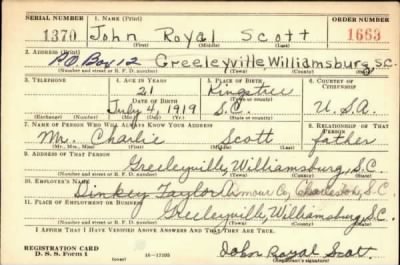 SERIAL NUMBER 1. NAME (Print) ORDER NUMBER
1370 John Royal Scott 1663
(First) (Middle) (Last)
2. ADDRESS (Print)
P.O. Box 12 Greeleyville, Williamsburg, S.C.
(Number and street or R. F. D. number) (Town) (County) (State)
3. TELEPHONE 4. AGE IN YEARS 5. PLACE OF BIRTH 6. COUNTRY OF CITIZENSHIP
21 Kingstree
DATE OF BIRTH (Town or county)
July 4, 1919 S.C. U.S.A.
(Exchange) (Number) (Mo.) (Day) (Yr.) (State or country)
7. NAME OF PERSON WHO WILL ALWAYS KNOW YOUR ADDRESS 8. RELATIONSHIP OF THAT PERSON
Mr. Charlie Scott father
(Mr., Mrs., Miss) (First) (Middle) (Last)
9. ADDRESS OF THAT PERSON
Greeleyville, Williamsburg, S.C.
(Number and street or R. F. D. number) (Town) (County) (State)
10. EMPLOYER'S NAME
Dinkey Taylor Armour Co, Charleston, S.C.
11. PLACE OF EMPLOYMENT OR BUSINESS
Greeleyville, Williamsburg, S.C.
(Number and street or R. F. D. number) (Town) (County) (State)
I AFFIRM THAT I HAVE VERIFIED ABOVE ANSWERS AND THAT THEY ARE TRUE.
REGISTRATION CARD
D. S. S. Form 1 (over) 16—17105
John Royal Scott